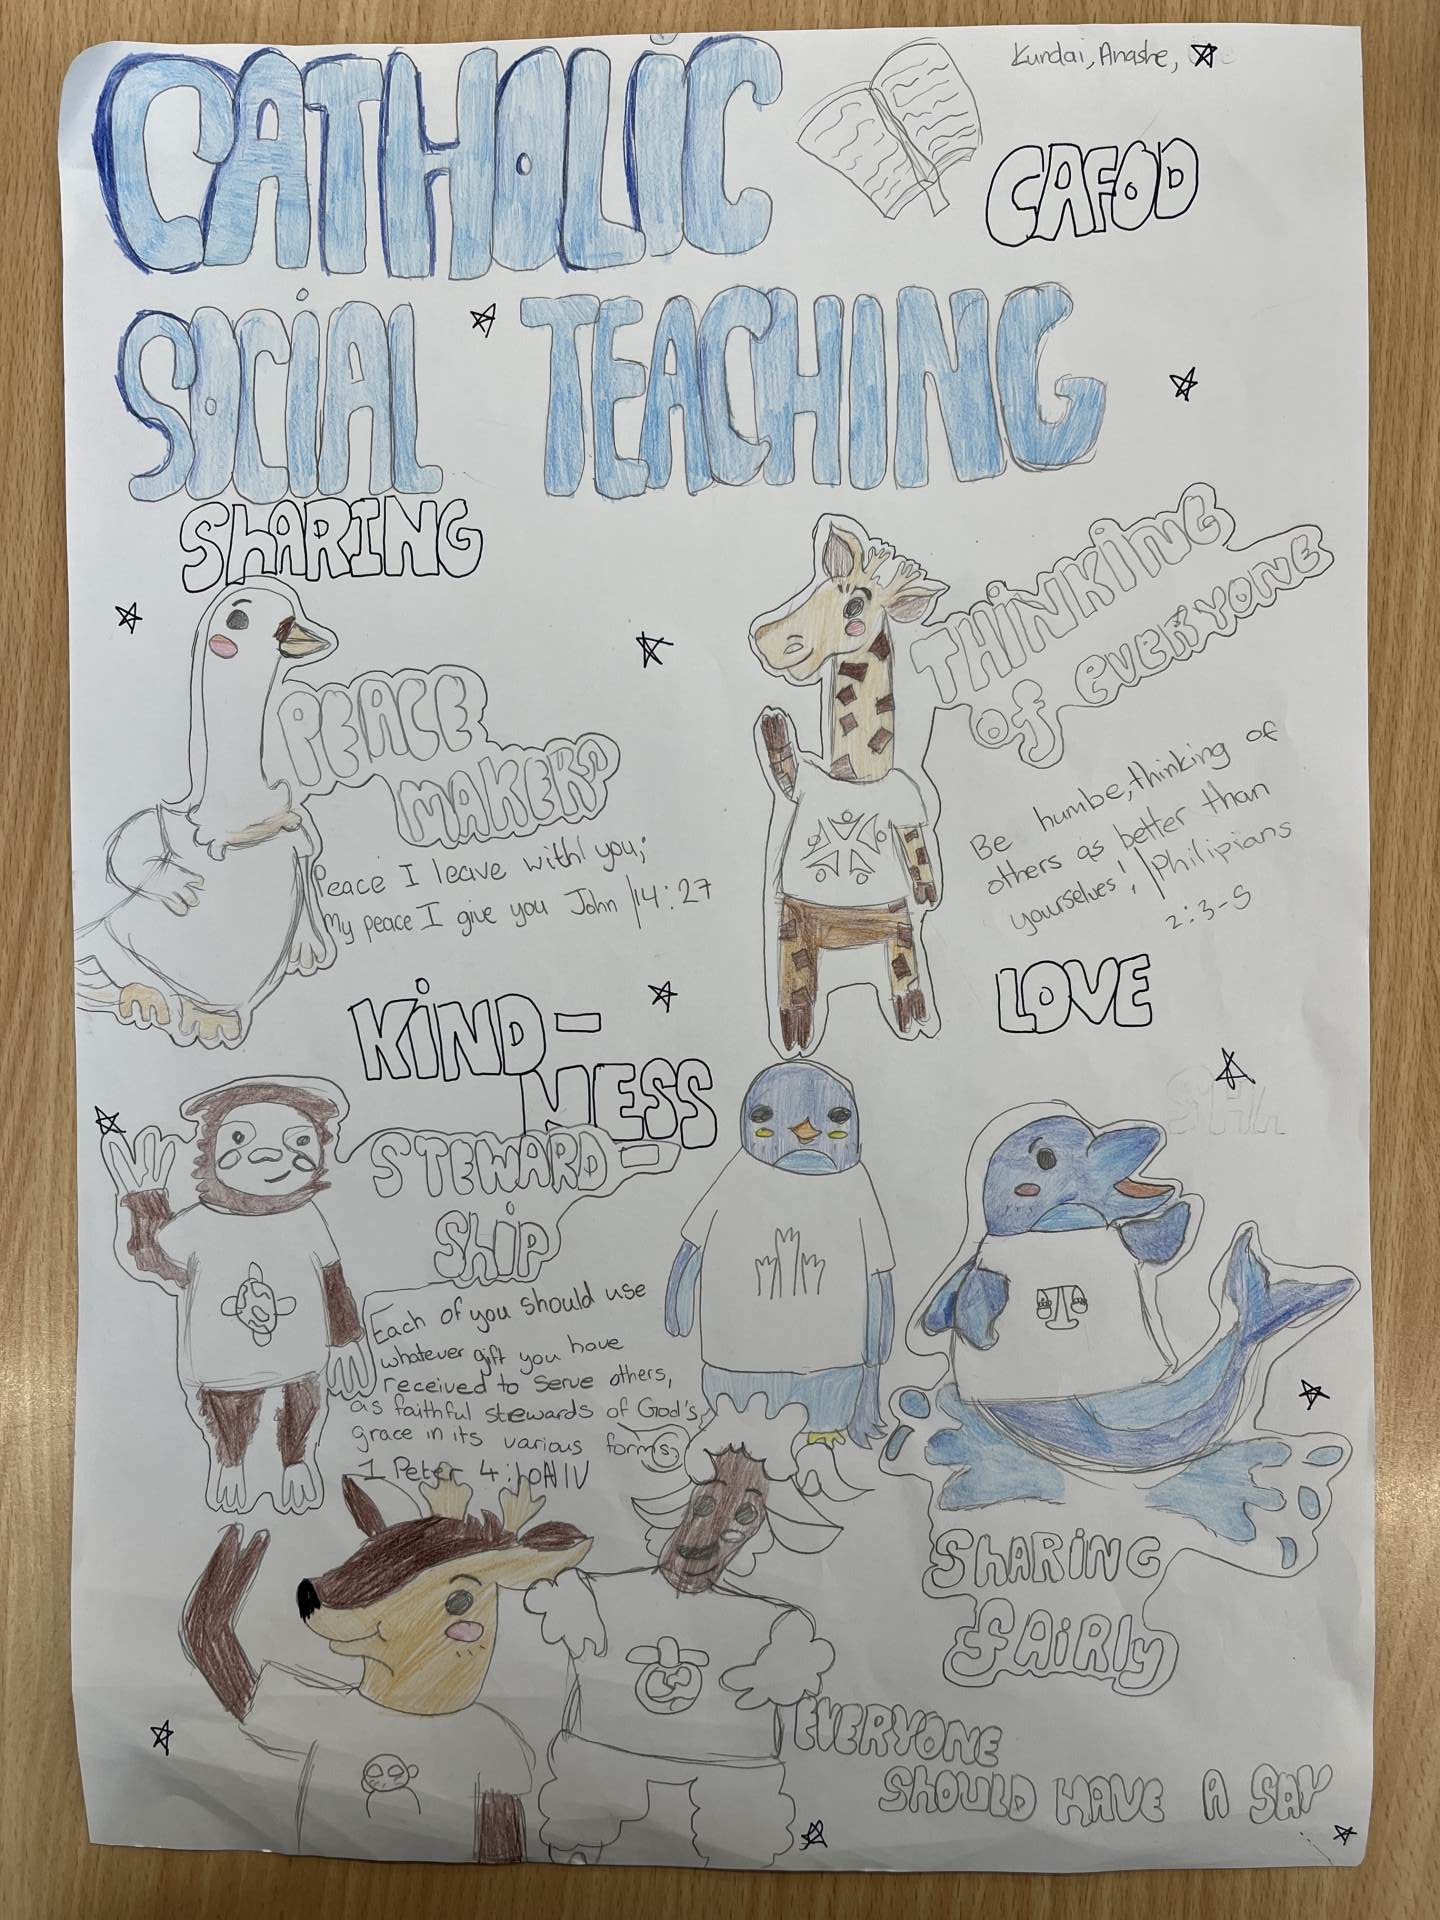 Kundai, Anashe,
CATHOLIC
CAFOD
SOCIAL TEACHING
SHARING
THINKING
of EVERYONE
PEACE
MAKERS
Be humbe, thinking of
others as better than
yourselves', Philipians
2:3-5
Peace I leave with you;
My peace I give you John 14:27
LOVE
KIND-
NESS
STEWARD-
Ship
Each of you should use
whatever gift you have
received to serve others,
as faithful stewards of God's,
grace in its various forms,
1 Peter 4:10 NIV
SHARING
fAiRly
EVERYONE
SHOULD HAVE A SAY